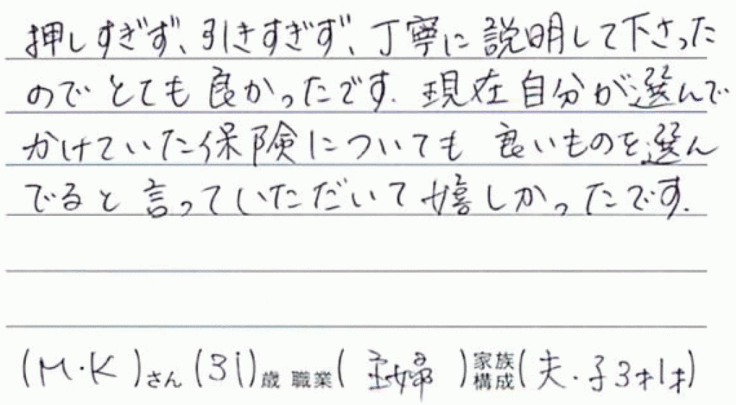 押しすぎず、引きすぎず、丁寧に説明して下さった
のでとても良かったです. 現在自分が選んで
かけていた保険についても良いものを選ん
でると言っていただいて嬉しかったです.
(M・K)さん (31)歳 職業( 主婦 )家族構成(夫・子3才1才)